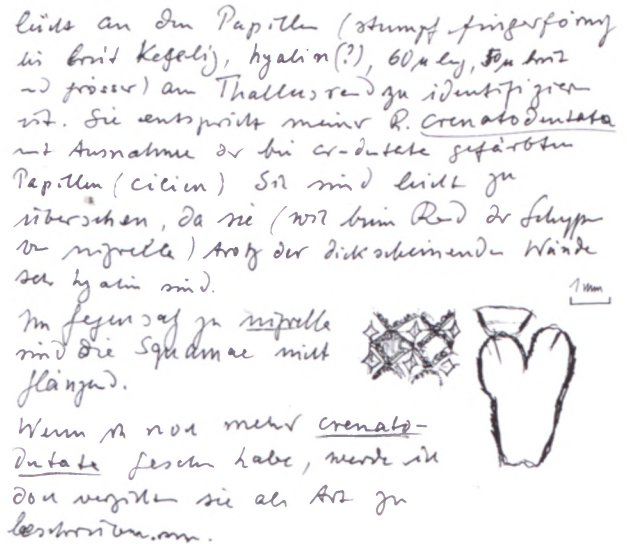 leicht an den Papillen (stumpf fingerförmig
bis breit kegelig, hyalin (?), 60 µ lg, 50 µ breit
und grösser) am Thallusrand zu identifizieren
ist. Sie entspricht meiner R. crenatodentata
mit Ausnahme der bei cr-dentata gefärbten
Papillen (cilien) Sie sind leicht zu
übersehen, da sie (wie beim Rand der Schuppe
von nigrella) trotz der dickscheinenden Wände
sehr hyalin sind.
1 mm
Im Gegensatz zu nigrella
sind die Squamae nicht
glänzend.
Wenn ich noch mehr crenato-
dentata gesehen habe, werde ich
doch sie als Art zu
beschreiben.